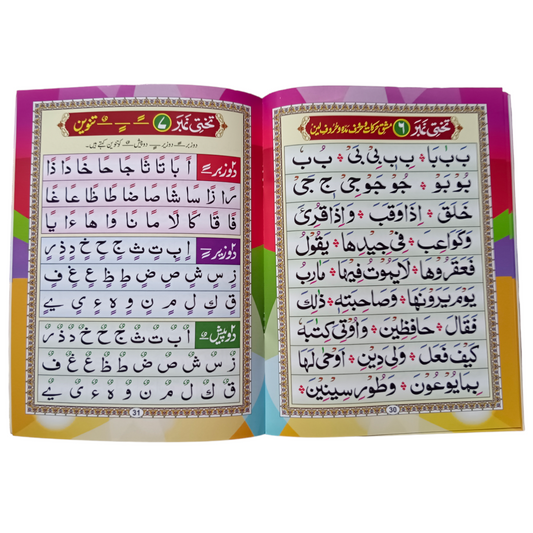 تختی نمبر ۶ مشق حرکات و حروف مدہ و حروف لین
بَ بَا بَا ۞ بِ بِیْ بِیْ ۞ بُ بُ
بُوْ بَوْ ۞ جُوْ جَوْ جِیْ جَ جَیْ
خَلَقَ ۞ اِذَا وَقَبَ ۞ وَ اِذَا قُرِئَ
وَکَوَاعِبَ ۞ فِیْ جِیْدِهَا ۞ یَقُوْلُ
فَعَقَرُوْهَا ۞ لَا یَمُوْتُ فِیْهَا ۞ مَاٰرِبُ
یَوْمَ یَرَوْنَهَا ۞ وَصَاحِبَتِهٖ ۞ ذٰلِكَ
فَقَالَ ۞ حَافِظِیْنَ ۞ وَ اُوْتِیَ کِتٰبَهٗ
کَیْفَ فَعَلَ ۞ وَلِیَ دِیْنِ ۞ اَوْحٰی لَهَا
بِمَا یُوْعُوْنَ ۞ وَطُوْرِ سِیْنِیْنَ ۞
30
تختی نمبر ۷ تنوین
دو زبر ـً دو زیر ـٍ دو پیش ـٌ کو تنوین کہتے ہیں۔
دو زبر ـً
اً بًا تًا ثًا جًا حًا خًا دًا ذًا
رًا زًا سًا شًا صًا ضًا طًا ظًا عًا غًا
فًا قًا کًا لًا مًا نًا وًا هًا ءً ا یًا
دو زیر ـٍ
اٍ بٍ تٍ ثٍ جٍ حٍ خٍ دٍ ذٍ رٍ
زٍ سٍ شٍ صٍ ضٍ طٍ ظٍ عٍ غٍ فٍ
قٍ كٍ لٍ مٍ نٍ وٍ هٍ ءٍ یٍ ےٍ
دو پیش ـٌ
اٌ بٌ تٌ ثٌ جٌ حٌ خٌ دٌ ذٌ رٌ
زٌ سٌ شٌ صٌ ضٌ طٌ ظٌ عٌ غٌ فٌ
قٌ كٌ لٌ مٌ نٌ وٌ هٌ ءٌ یٌ ےٌ
31